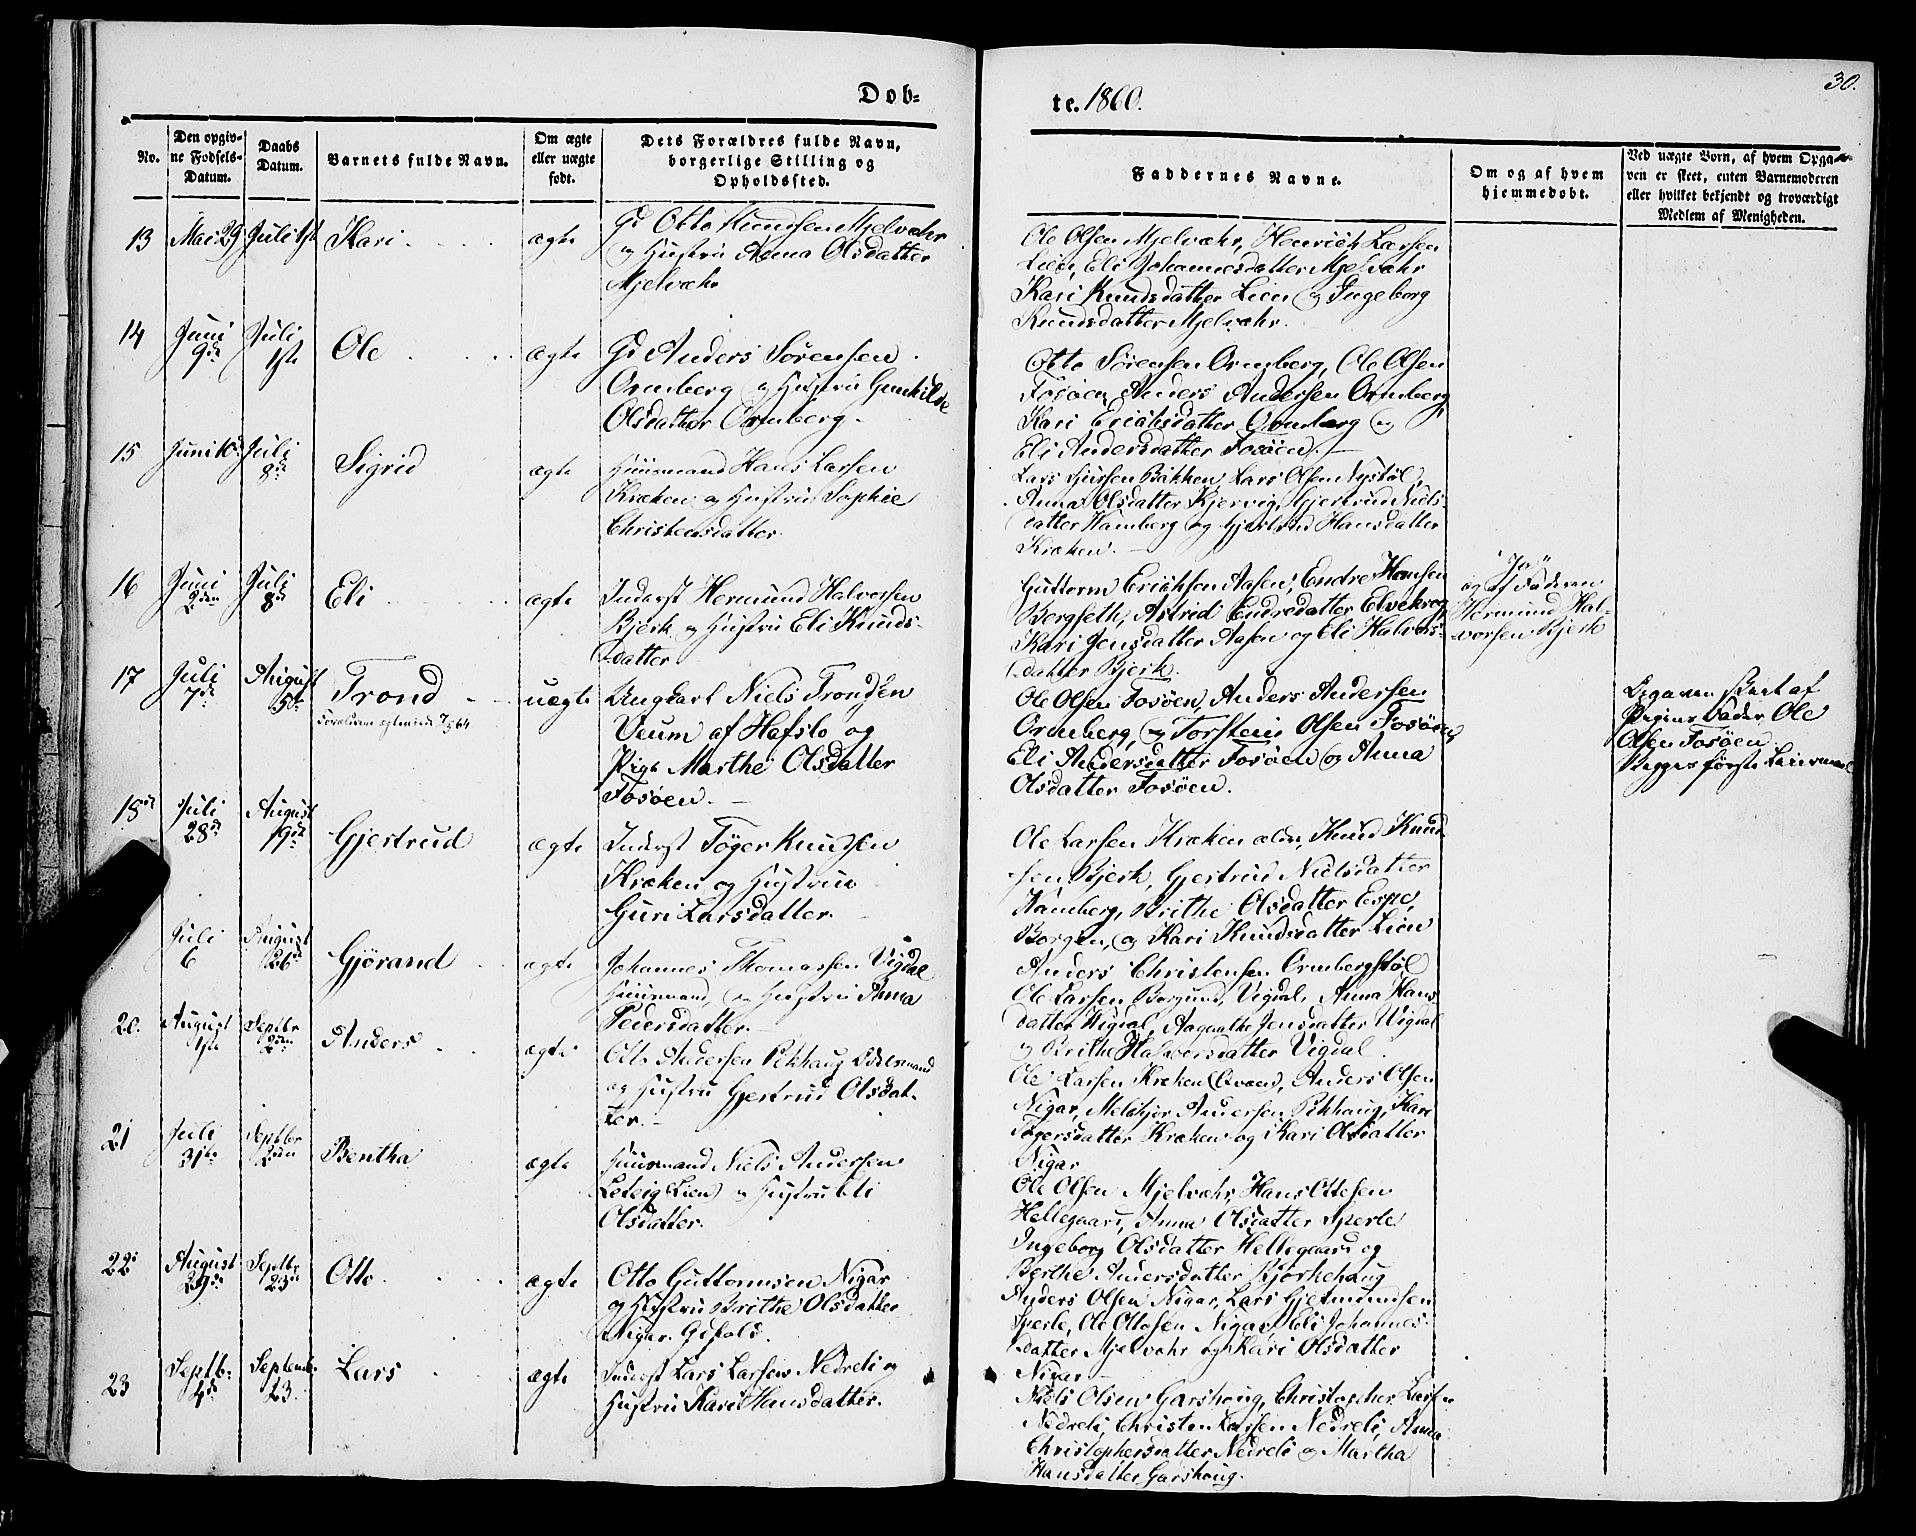 30.
Dob-
te. 1860.
No.
Den opgiv-
ne Fødsels-
Datum.
Daabs
Datum.
Barnets fulde Navn.
Om ægte
eller uægte
født.
Dets Forældres fulde Navn,
borgerlige Stilling og
Opholdssted.
Faddernes Navne.
Om og af hvem
hjemmedøbt.
Ved uægte Born, af hvem Opga-
ven er skeet, enten Barnemoderen
eller hvilket bekjendt og troværdigt
Medlem af Menigheden.
13 Mai 29 Juli 1ste Kari ægte
Gd Otto Knudsen Mjelvæhr
og Hustru Anna Olsdatter
Mjelvæhr
Ole Olsen Mjelvæhr, Henrich Larsen
Lien, Eli Johannesdatter Mjelvæhr
Kari Knudsdatter Lien og Ingeborg
Knudsdatter Mjelvæhr.
14 Juni 9de Juli 1ste Ole ægte
Gd Anders Sørensen
Ormberg og Hustru Gunhilde
Olsdatter Ormberg.
Otto Sørensen Ormberg, Ole Olsen
Fosøen, Anders Andersen Ormberg,
Kari Erichsdatter Ormberg og
Eli Andersdatter Fosøen.
15 Juni 10de Juli 8de Sigrid ægte
Huusmand Hans Larsen
Kræken og Hustru Sophie
Christensdatter.
Lars Bakken, Lars Olsen Nystøl,
Anna Olsdatter Kjervig, Gjertrud Niels-
datter Hamberg og Gjertrud Hansdatter
Kræken.
16 Juni 2den Juli 8de Eli ægte
Inderst Hermund Halvorsen
Bjerk og Hustru Eli Knuds-
datter
Guttorm Erichsen Aasen, Endre Hansen
Bergseth, Astrid Endredatter Elvekrog,
Kari Jensdatter Aasen og Eli Halvors-
datter Bjerk.
"Ja"
og af Faderen
Hermund Hal-
vorsen Bjerk
17 Juli 7de August 5te Trond uægte
Ungkarl Niels Trondsen
Veum af Hafslo og
Pige Marthe Olsdatter
Fosøen.
Ole Olsen Fosøen, Anders Andersen
Ormberg, og Torstein Olsen Fosøen,
Eli Andersdatter Fosøen og Anna
Olsdatter Fosøen.
Opgaven skeet af
Pigens Fader Ole
Olsen Fosøen.
Begges første Leiermaal
18de Juli 28de August 19de Gjertrud ægte
Inderst Tøger Knudsen
Kræken og Hustru
Guri Larsdatter.
Ole Larsen Kræken ældr, Knud Knud-
sen Bjerk, Gjertrud Nielsdatter
Hamberg, Brithe Olsdatter Espe,
Borgen, og Kari Knudsdatter Lien
Juli 6 August 26de Gjørand ægte
Johannes Thomassen Vigdal
Huusmand, og Hustru Anna
Pedersdatter.
Anders Christensen Ormbergstøl
Ole Larsen Borgund, Vigdal, Anna Hans
datter Vigdal, Aagonthe Jensdatter Vigdal
og Brithe Halvorsdatter Vigdal
20. August 1ste Septbr 2den Anders ægte
Otto Andersen Pikhaug Odelsmand
og Hustru Gjertrud Olsdat-
ter.
Ole Larsen Kræken (Qvæen), Anders Olsen
Nigar, Melchjor Andersen Pikhaug, Kari
Tøgersdatter Kræken og Kari Olsdatter
Nigar
21 Juli 31te Septbr 2den Bentha ægte
Huusmand Niels Andersen
Leteig (Lien) og Hustru Eli
Olsdatter.
Ole Olsen Mjelvæhr, Hans Ottesen
Hellegaard, Anna Olsdatter Sperle
Ingeborg Olsdatter Hellegaard og
Berthe Andersdatter Bjørkehaug
22 August 29de Septbr 23de Otto ægte
Otto Guttormsen Nigar
og Hustru Brithe Olsdatter
Nigar.
Anders Olsen Nigar, Lars Gjermundsen
Sperle, Ole Ottesen Nigar, Eli Johannes-
datter Mjelvæhr og Kari Olsdatter
Nigar
23 Septb: 4de Septemb: 23. Lars ægte
Inderst Lars Larsen Nedreli og
Hustru Kari Hansdatter.
Niels Olsen Garshaug, Christopher Larsen
Nedreli, Christen Larsen Nedreli, Anna
Christophersdatter Nedreli og Martha
Hansdatter Garshaug.